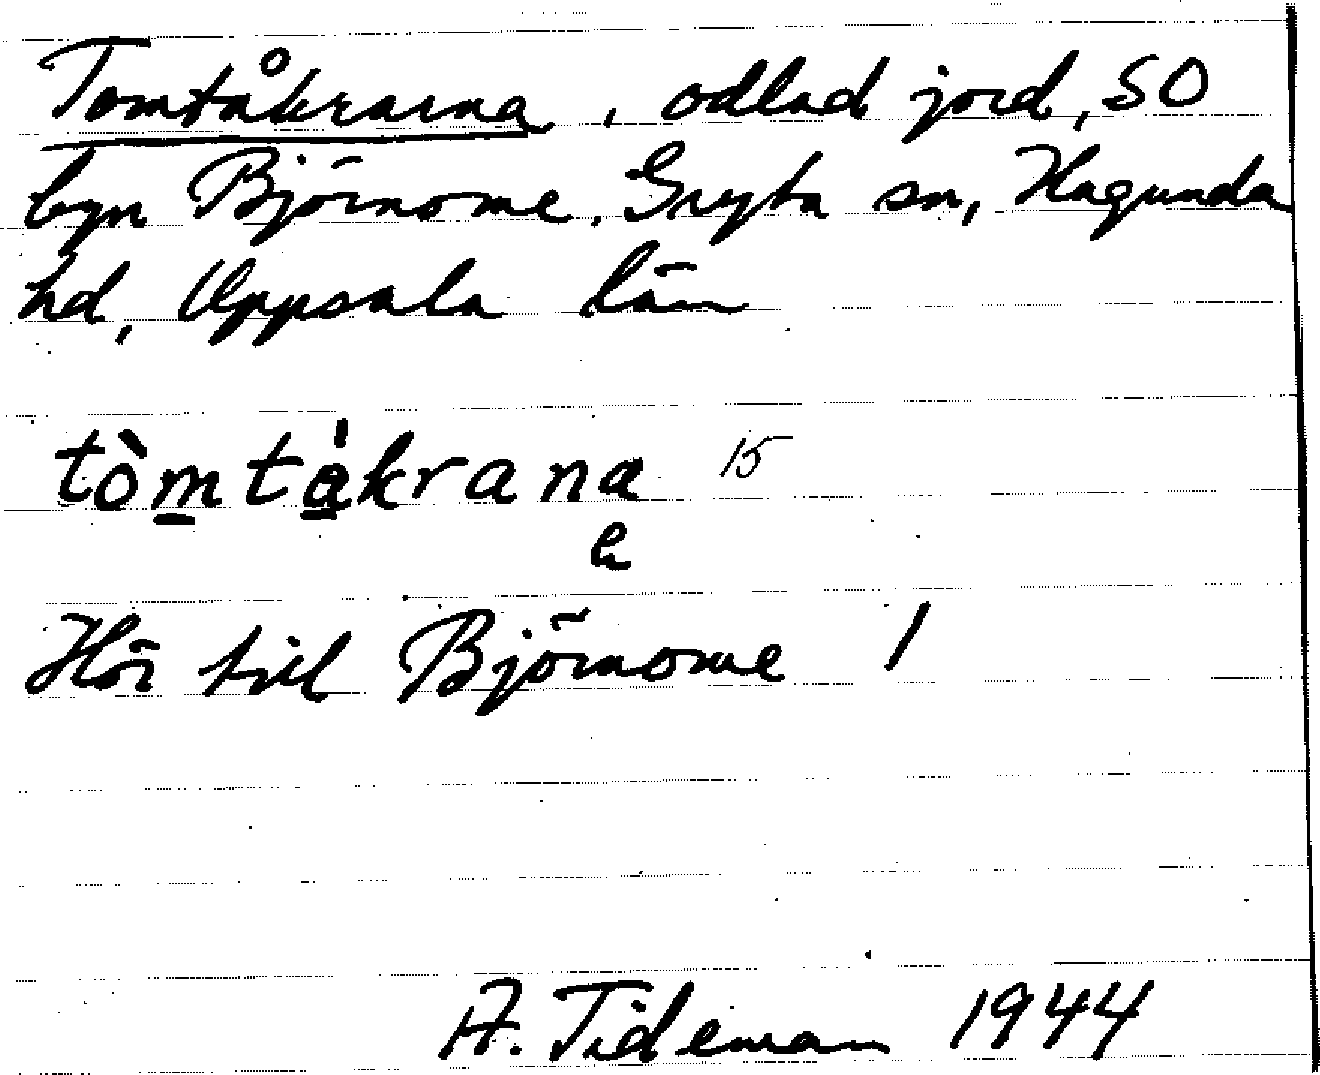 Tomtåkrarna, odlad jord, SO
byn Björnome. Gryta sn, Hagunda
hd, Uppsala län
tòmtåkrana 15
e
Hör till Björnome 1
A. Tideman 1944